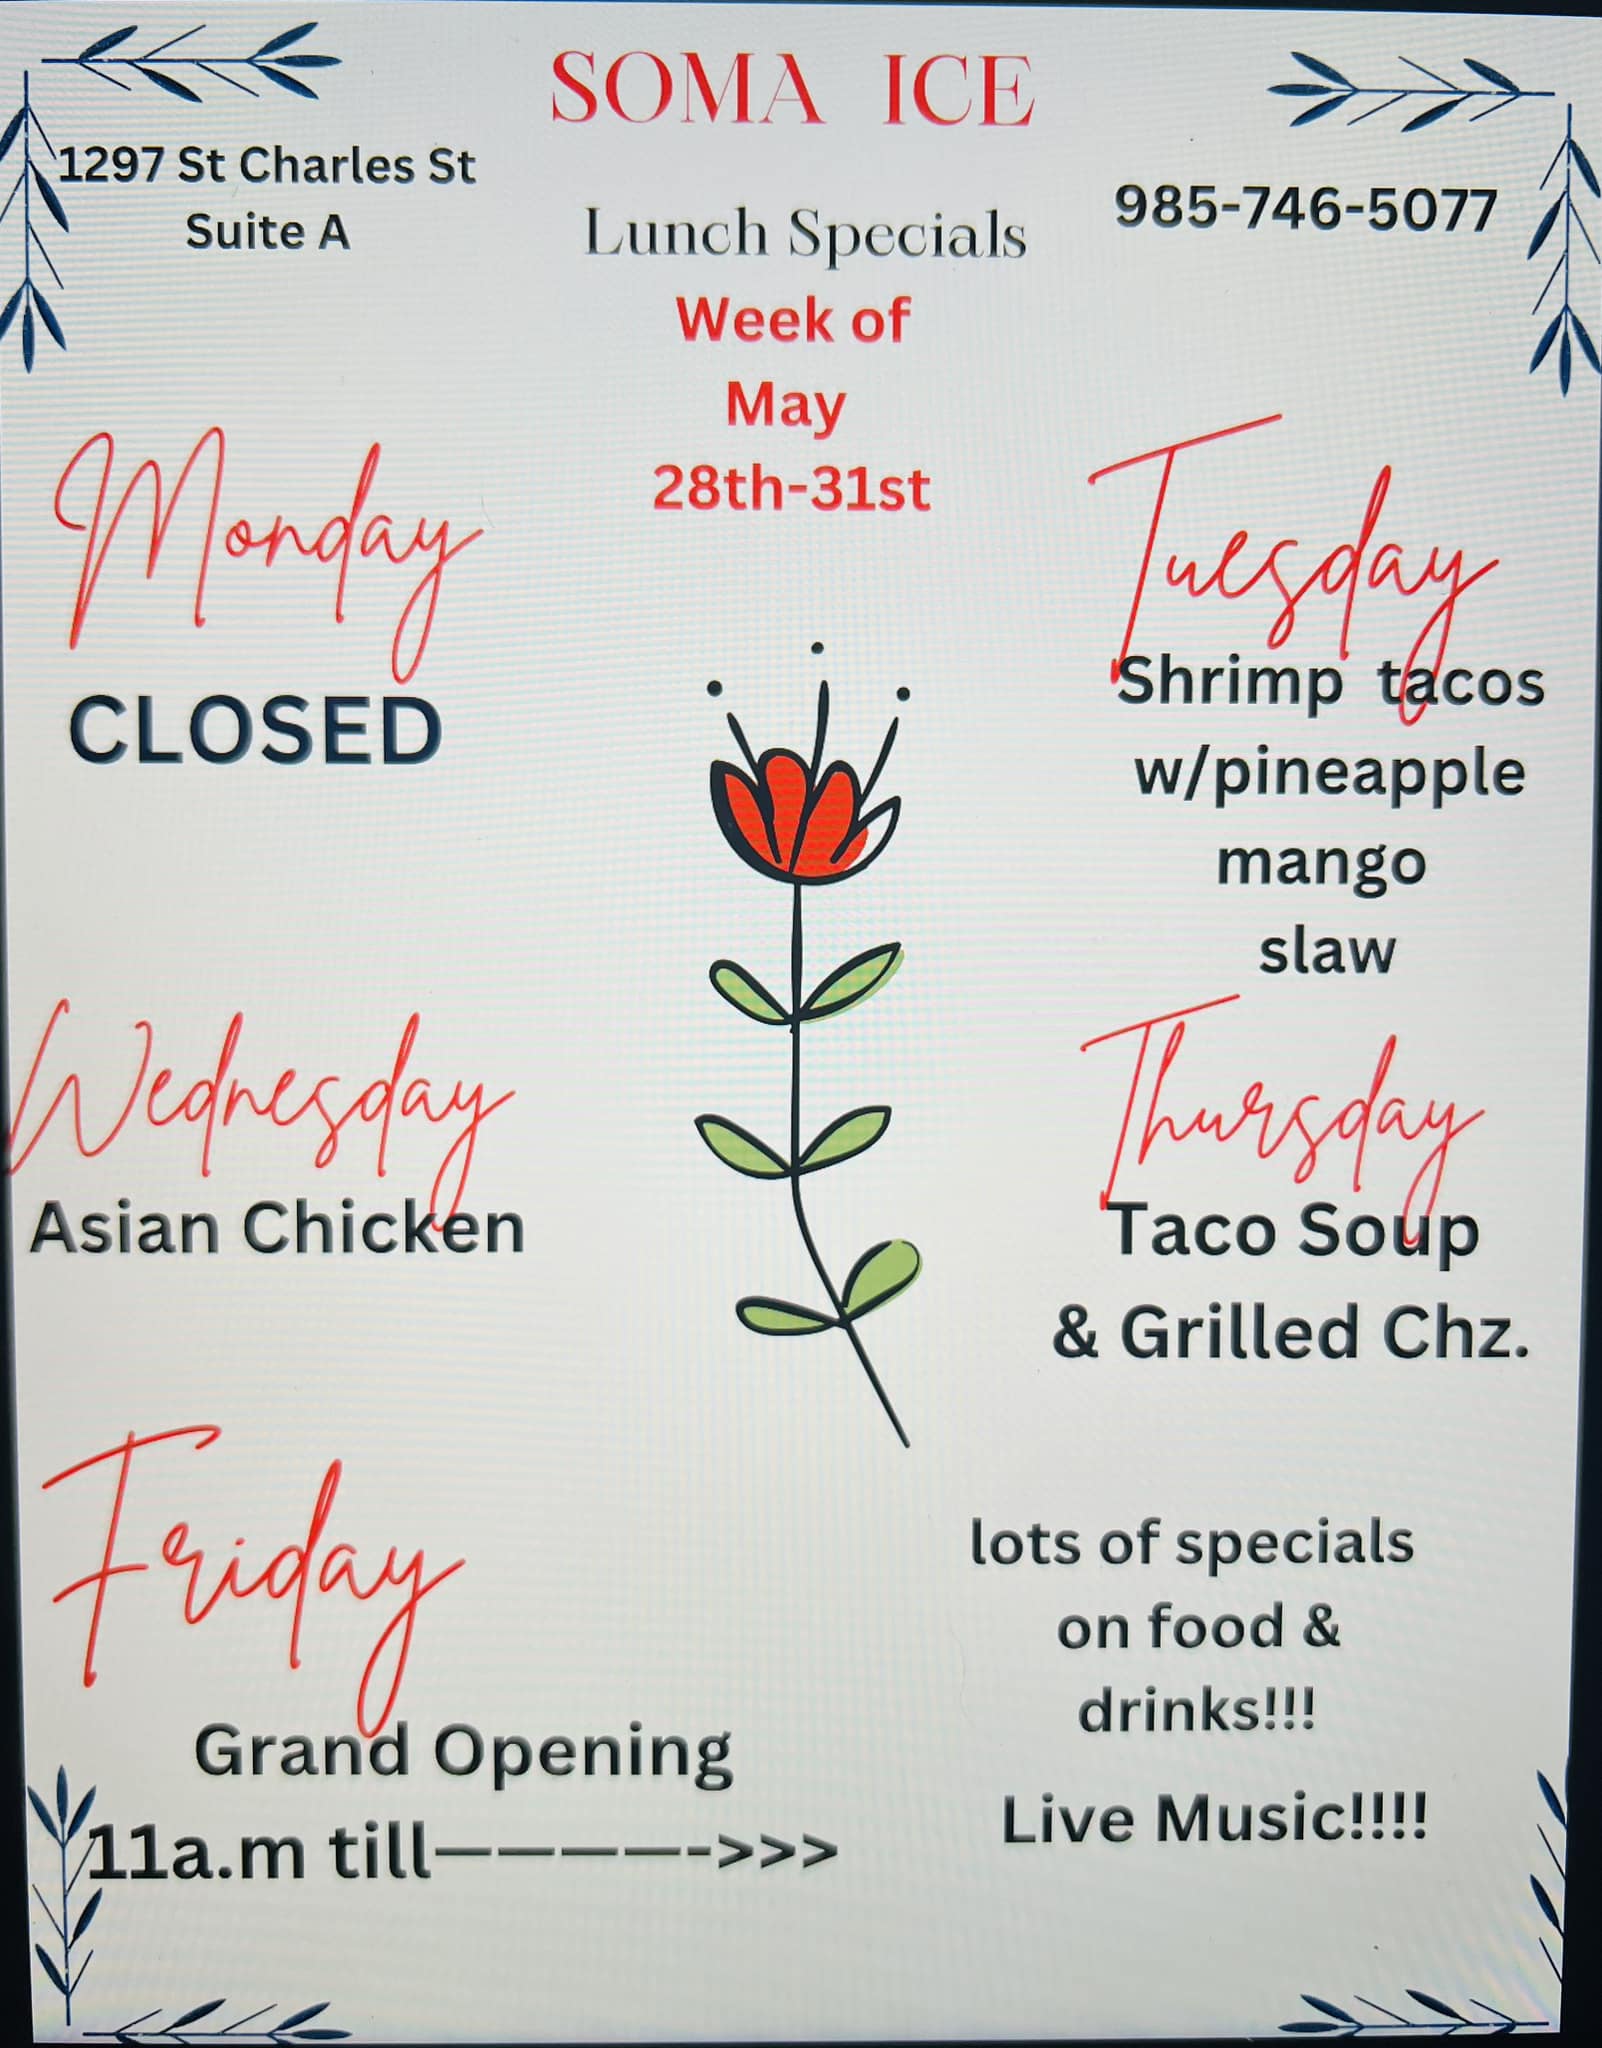 SOMA ICE
1297 St Charles St
Suite A
985-746-5077
Lunch Specials
Week of
May
28th-31st
Monday
CLOSED
Tuesday
Shrimp tacos
w/pineapple
mango
slaw
Wednesday
Asian Chicken
Thursday
Taco Soup
& Grilled Chz.
Friday
Grand Opening
11a.m till—————->>>
lots of specials
on food &
drinks!!!
Live Music!!!!